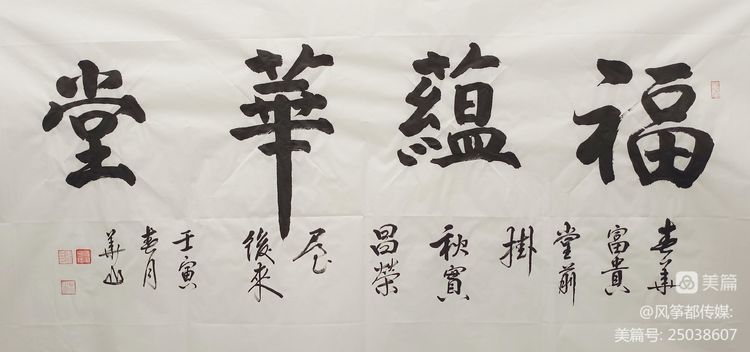 福蘊華堂
春華
富貴
堂前
掛
秋實
昌榮
屋
後來
壬寅
春月
華山
美篇
@风筝都传媒:
美篇号: 25038607